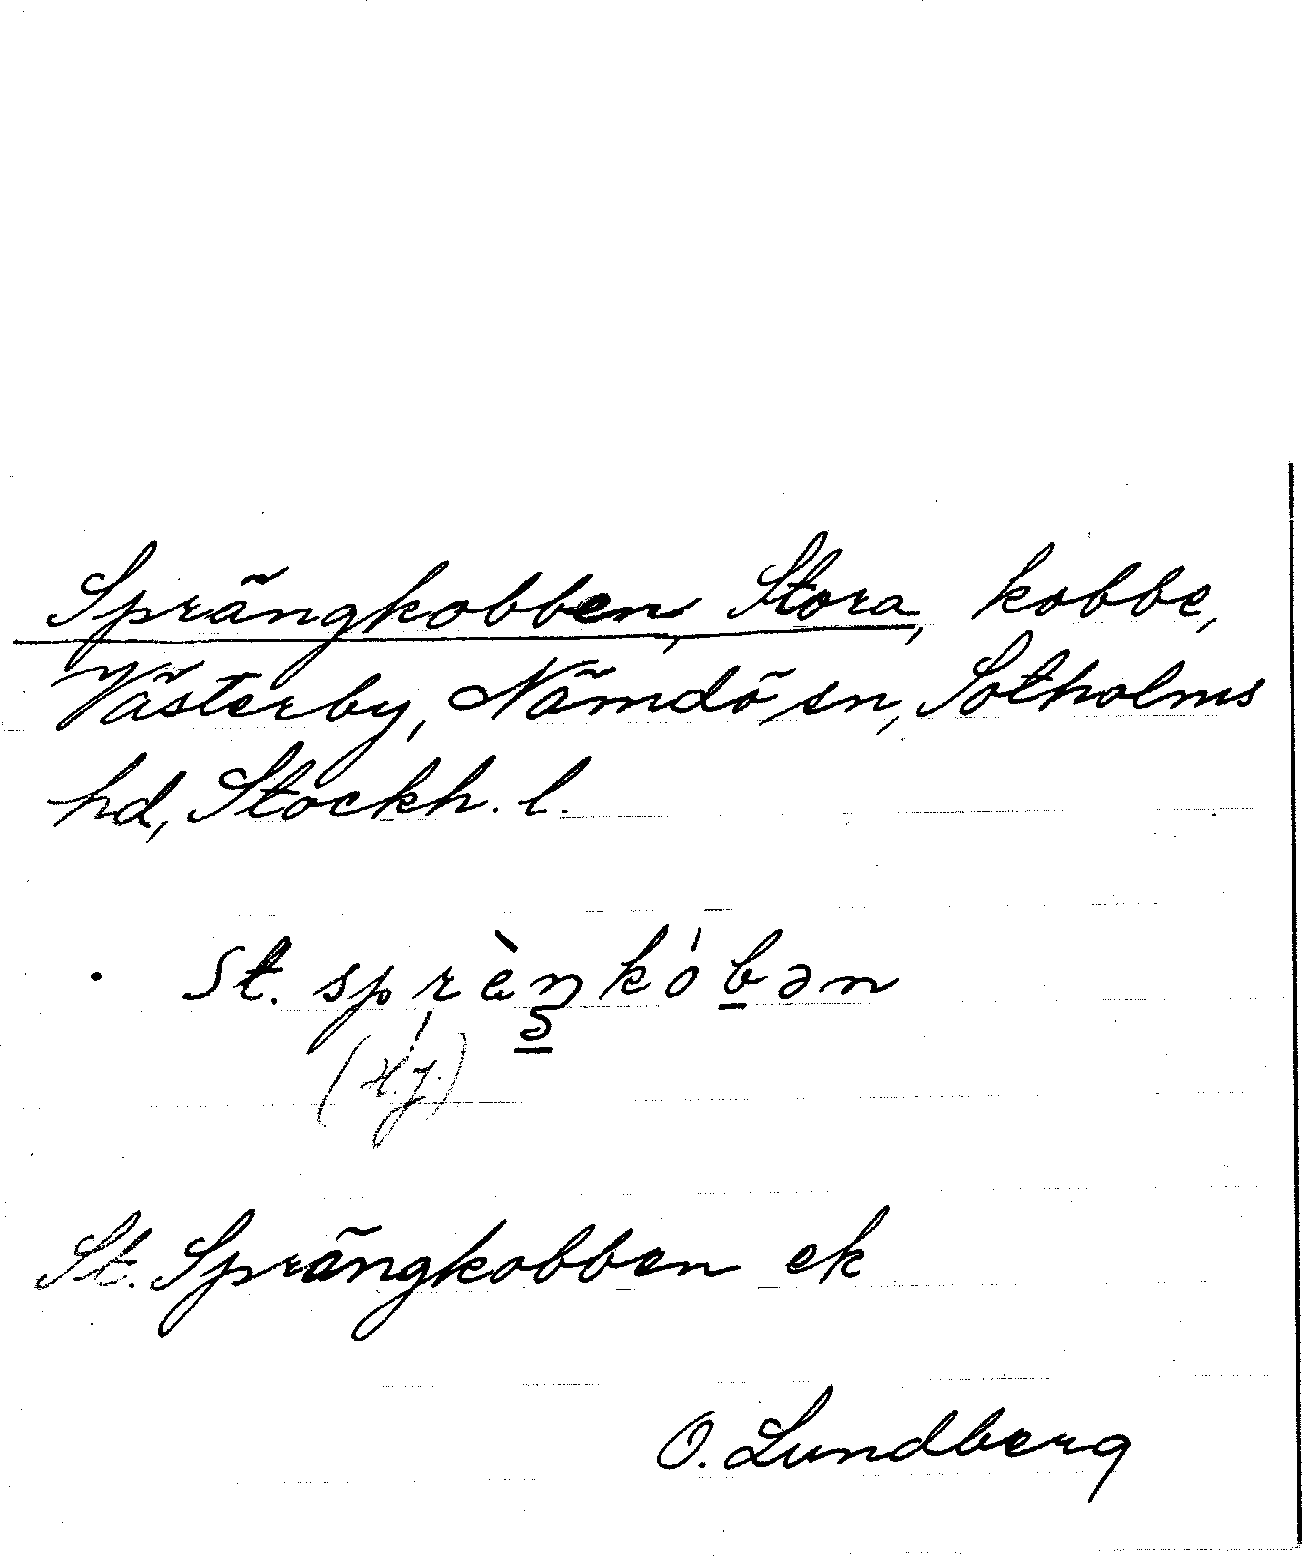 Sprängkobben, Stora, kobbe,
Västerby, Nämdö sn, Sotholms
hd, Stockh. l.
St. sprὲŋkóbən
St. Sprängkobben ek
O. Lundberg